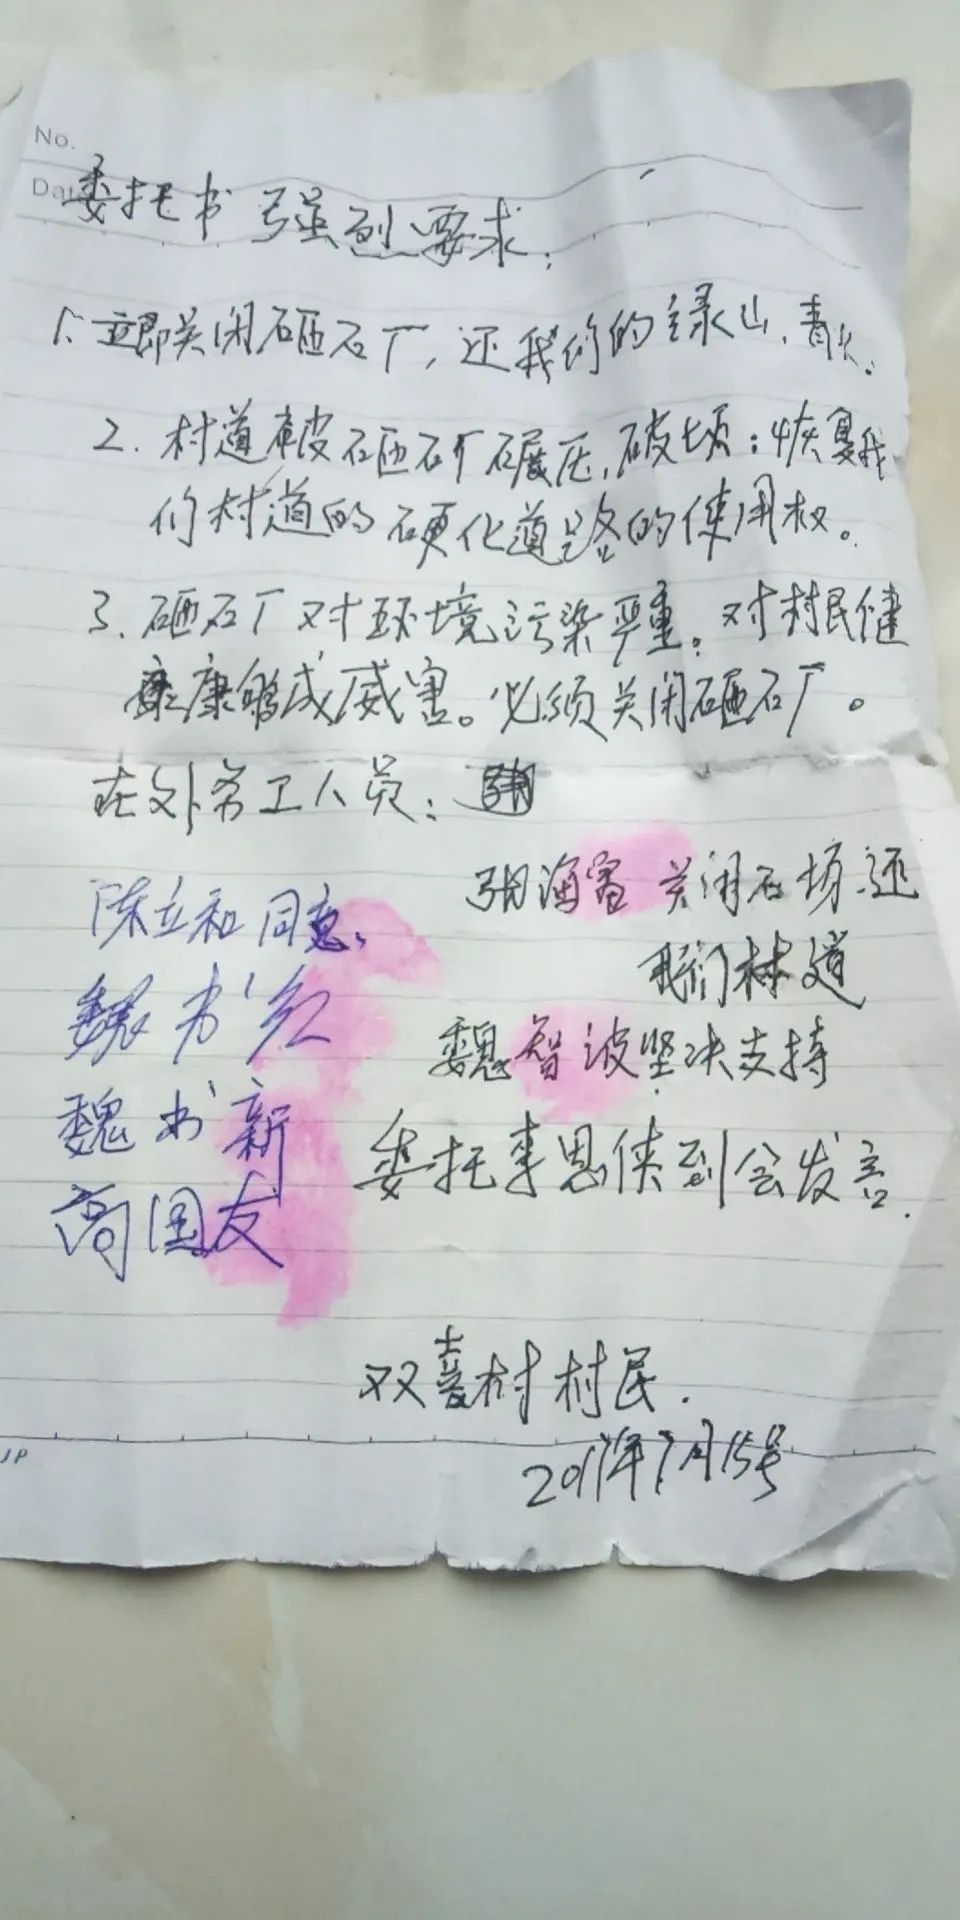 No.
Date
委托书 强烈要求:
1. 立即关闭砸石厂,还我们的绿山、青水.
2. 村道被砸石厂碾压,破坏;恢复我
们村道的硬化道路的使用权。
3. 砸石厂对环境污染严重。对村民健
康 成威害。必须关闭砸石厂。
在外务工人员:
张海 关闭石场.还
我们村道
陈立和同意、
魏书红
魏智波坚决支持
魏书新
委托李恩侠到会发言.
高国友
双喜村村民.
7月15号